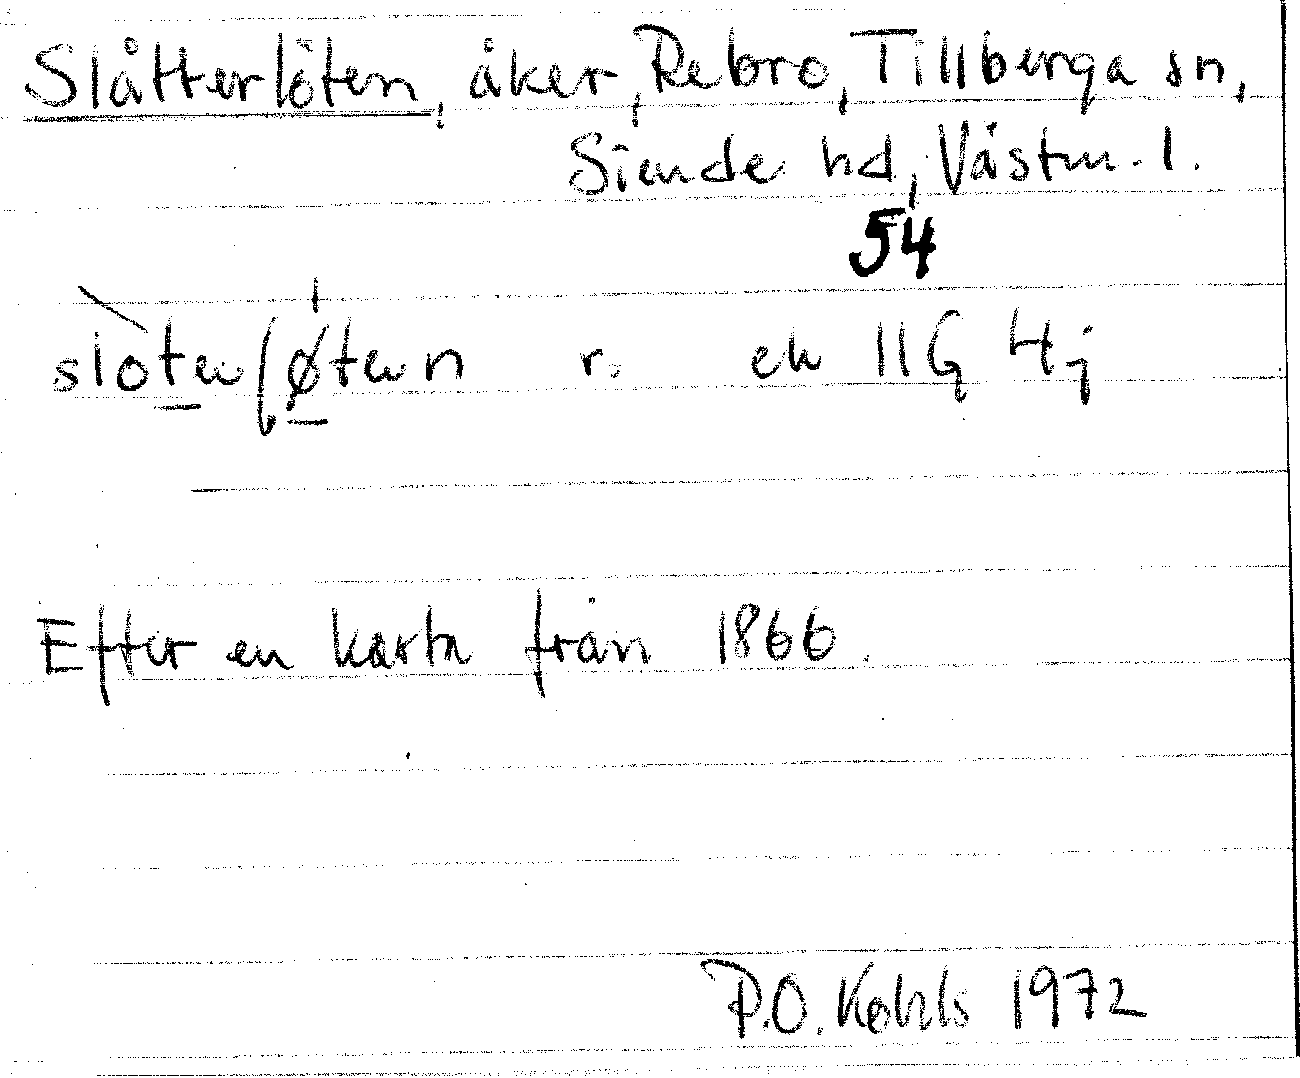 Slåtterlöten, åker, Rebro, Tillberga sn,
Siende hd, Västm. l.
54
r. ek 11G 4j
Efter en karta från 1866.
P.O. Kohls 1972